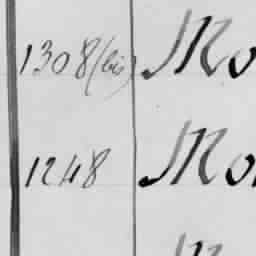 1308 (bis) Mo
1248 Mo